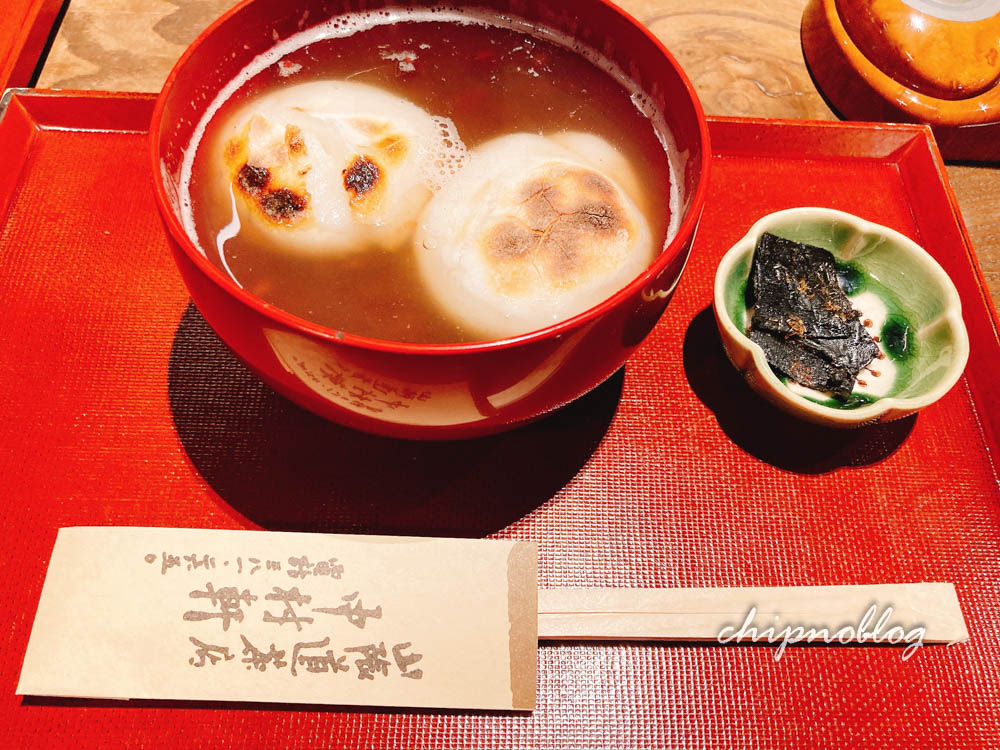 山陰道茶店
中村軒
電話三八一・二六五〇
chipnoblog